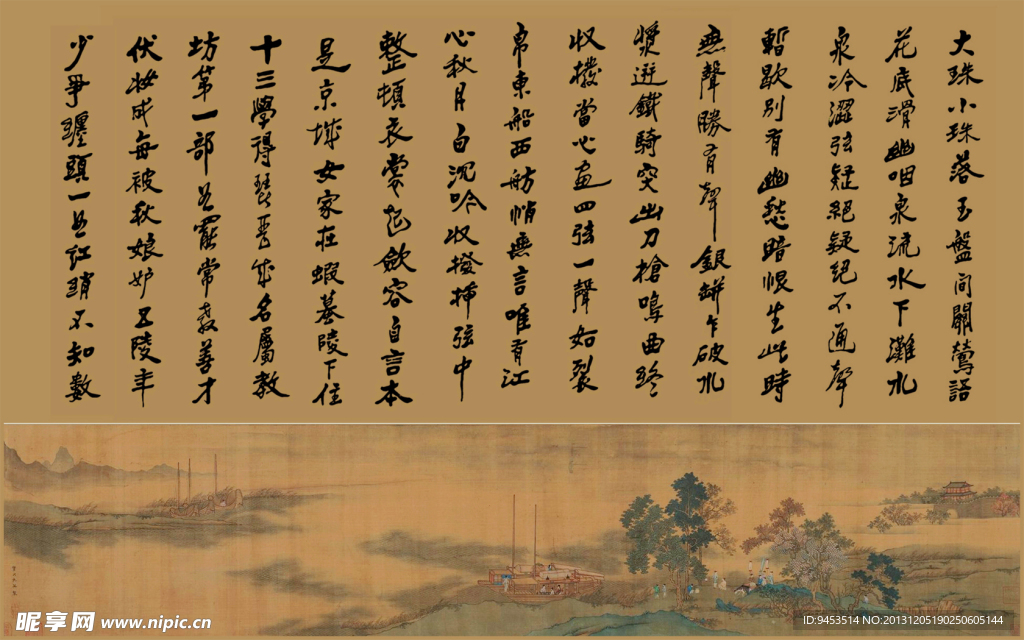 大珠小珠落玉盤間關鶯語
花底滑幽咽泉流水下灘水
泉冷澀弦疑絕疑絕不通聲
暫歇別有幽愁暗恨生此時
無聲勝有聲銀缾乍破水
漿迸鐵騎突出刀槍鳴曲終
收撥當心畫四弦一聲如裂
帛東船西舫悄無言唯有江
心秋月白沉吟收撥插弦中
整頓衣裳起斂容自言本
是京城女家在蝦蟇陵下住
十三學得琵琶成名屬教
坊第一部曲罷常教善才
伏妝成每被秋娘妒五陵年
少爭纏頭一曲紅綃不知數
昵享网 www.nipic.cn
ID:9453514 NO:20131205190250605144